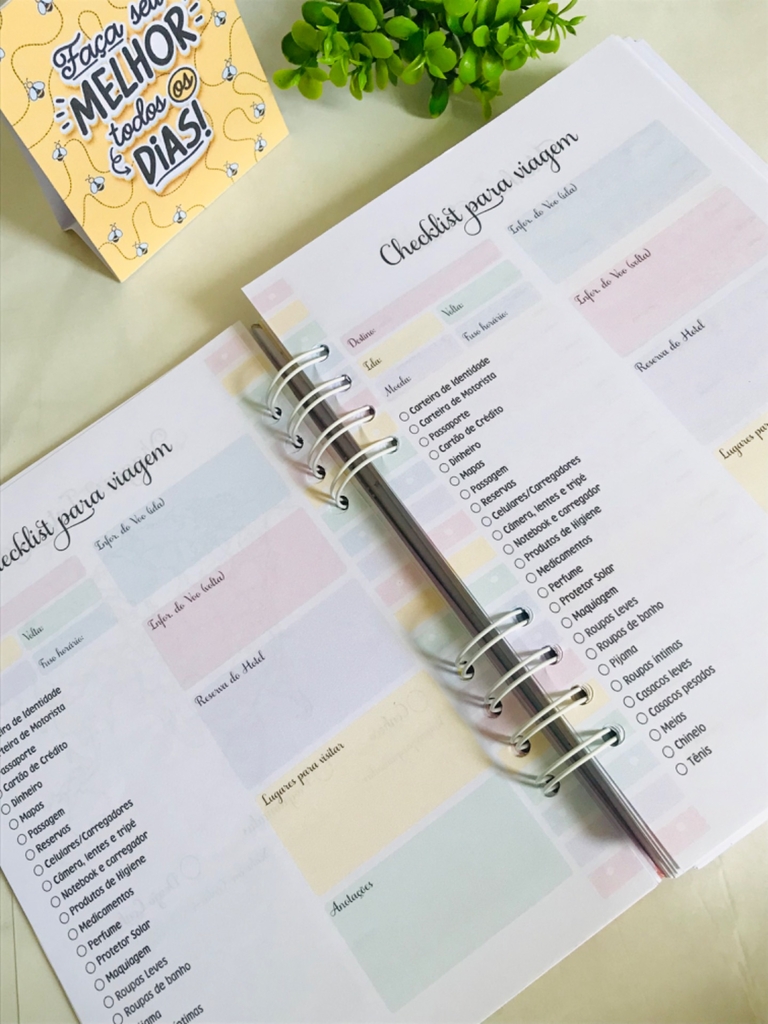 Faça seu
MELHOR
todos os
DIAS!
Checklist para viagem
Infor. do Voo (ida)
Infor. do Voo (volta)
Reserva do Hotel
Lugares para visitar
Anotações
Volta:
Fuso horário:
Carteira de Motorista
Passaporte
Cartão de Crédito
Dinheiro
Mapas
Passagem
Reservas
Celulares/Carregadores
Câmera, lentes e tripé
Notebook e carregador
Produtos de Higiene
Medicamentos
Perfume
Protetor Solar
Maquiagem
Roupas Leves
Roupas de banho
Checklist para viagem
Destino:
Ida:
Volta:
Moeda:
Fuso horário:
Infor. do Voo (ida)
Infor. do Voo (volta)
Reserva do Hotel
Lugares
Carteira de Identidade
Carteira de Motorista
Passaporte
Cartão de Crédito
Dinheiro
Mapas
Passagem
Reservas
Celulares/Carregadores
Câmera, lentes e tripé
Notebook e carregador
Produtos de Higiene
Medicamentos
Perfume
Protetor Solar
Maquiagem
Roupas Leves
Roupas de banho
Pijama
Roupas íntimas
Casacos leves
Casacos pesados
Meias
Chinelo
Tênis